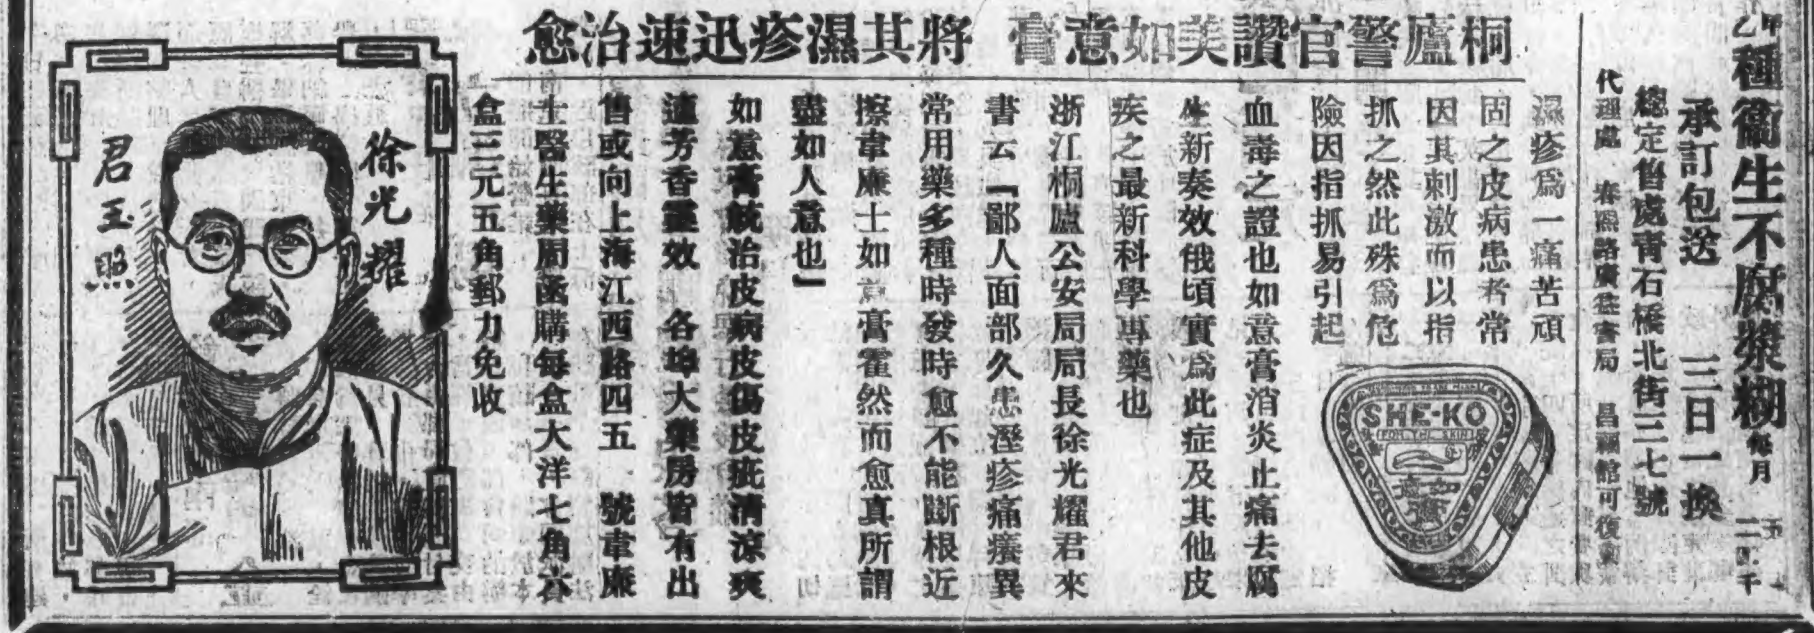 種衞生不腐漿糊 每月
承訂包送 三日一換
總定售處青石橋北街三七號
代理處 春熙路廣益書局 昌福館可復
桐廬警官讚美如意膏 將其濕疹迅速治愈
濕疹爲一痛苦頑
固之皮病患者常
因其刺激而以指
抓之然此殊爲危
險因指抓易引起
血毒之證也如意膏消炎止痛去腐
生新奏效俄頃實爲此症及其他皮
疾之最新科學專藥也
浙江桐廬公安局局長徐光耀君來
書云「鄙人面部久患溼疹痛癢異
常用藥多種時發時愈不能斷根近
擦韋廉士如意膏霍然而愈真所謂
盡如人意也」
如意膏統治皮病皮傷皮疵清涼爽
適芳香靈效 各埠大藥房皆有出
售或向上海江西路四五 號韋廉
士醫生藥局函購每盒大洋七角六
盒三元五角郵力免收
SHE-KO
FOR THE SKIN
如意膏
徐光耀
君玉照